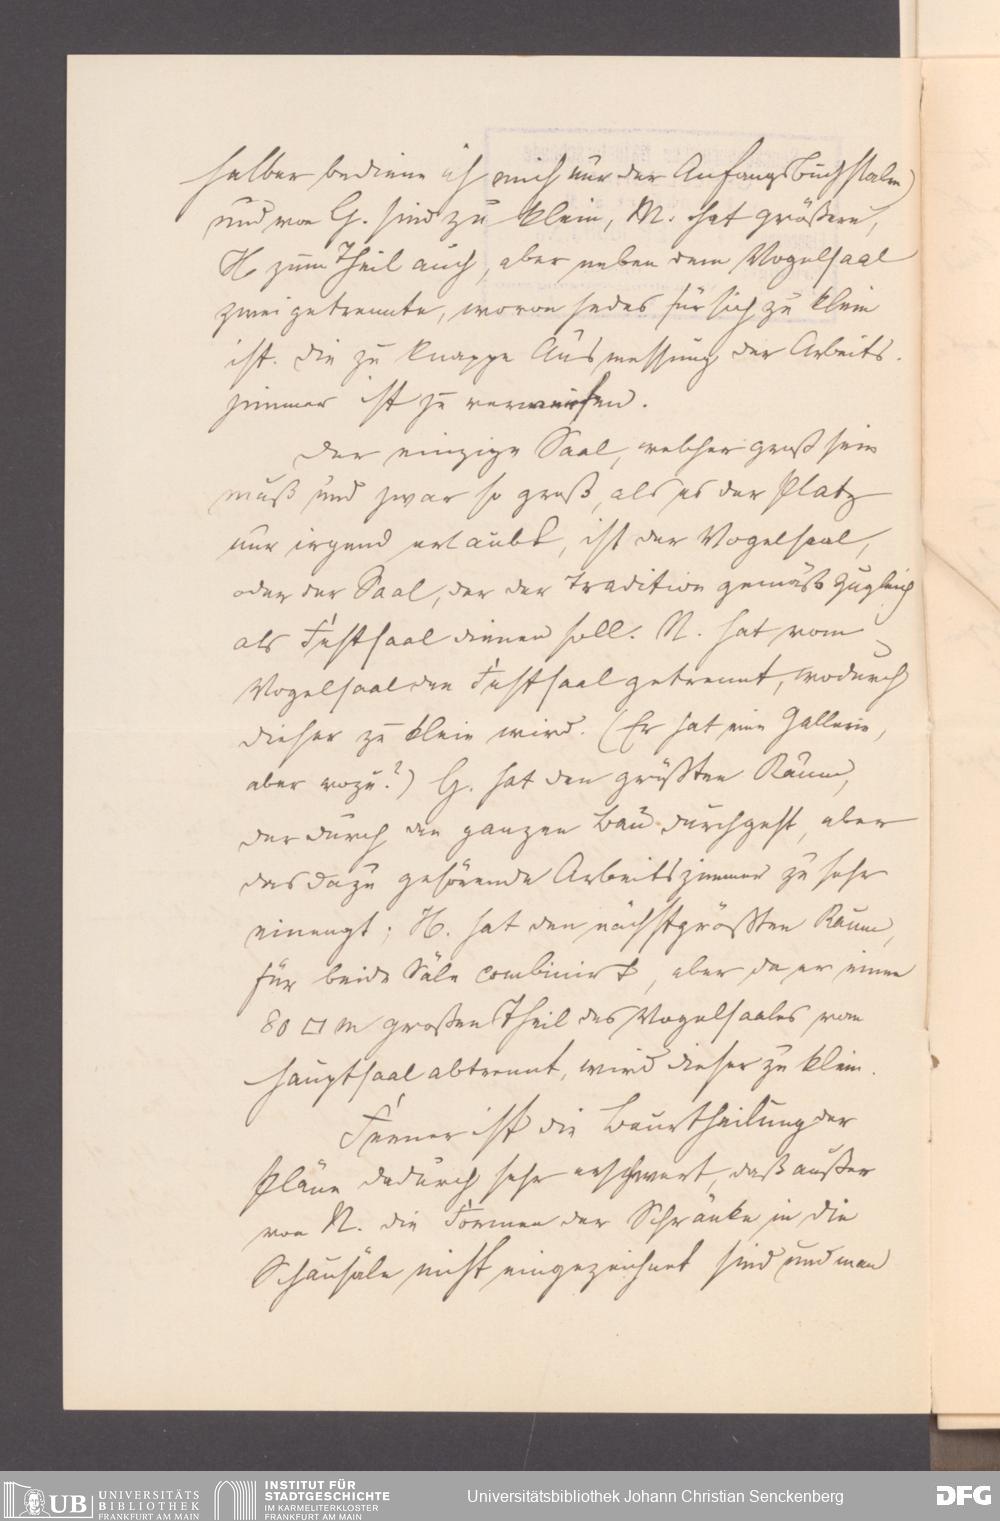 halber bediene ich mich nur der Anfangsbuchstaben)
und von G. sind zu klein, N. hat größere,
H zum Theil auch, aber neben dem Vogelsaal
zwei getrennte, wovon jedes für sich zu klein
ist. Die zu knappe Ausmessung der Arbeits-
zimmer ist zu verwerfen.
Der einzige Saal, welcher groß sein
muß und zwar so groß, als es der Platz
nur irgend erlaubt, ist der Vogelsaal,
oder der Saal, der der Tradition gemäß zugleich
als Festsaal dienen soll. N. hat vom
Vogelsaal den Festsaal getrennt, wodurch
dieser zu klein wird. (Er hat eine Gallerie,
aber wozu?) G. hat den größten Raum,
der durch den ganzen Bau durchgeht, aber
das dazu gehörende Arbeitszimmer zu sehr
einengt; H. hat den nächstgrößten Raum,
für beide Säle combinirt, aber da er einen
80 □ m großen Theil des Vogelsaales vom
Hauptsaal abtrennt, wird dieser zu klein.
Ferner ist die Beurtheilung der
Pläne dadurch sehr erschwert, daß außer
von N. die Formen der Schränke in die
Schausäle nicht eingezeichnet sind und man
UB UNIVERSITÄTS
BIBLIOTHEK
FRANKFURT AM MAIN
INSTITUT FÜR
STADTGESCHICHTE
IM KARMELITERKLOSTER
FRANKFURT AM MAIN
Universitätsbibliothek Johann Christian Senckenberg
DFG